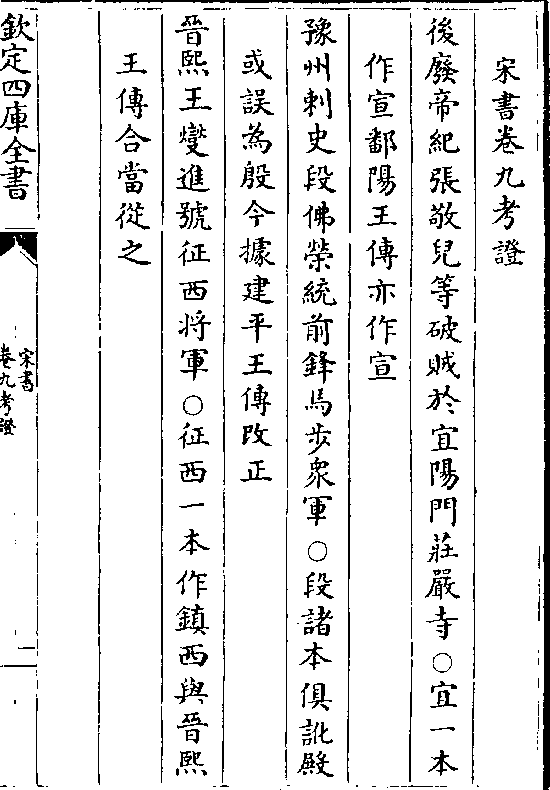 宋書卷九考證
後廢帝紀張敬兒等破賊於宜陽門莊嚴寺○宜一本
作宣鄱陽王傳亦作宣
豫州刺史段佛榮統前鋒馬步衆軍○段諸本俱訛殿
或誤為殷今據建平王傳改正
晉熙王燮進號征西将軍○征西一本作鎮西與晉熙
王傳合當從之
欽定四庫全書
宋書
卷九考證
一